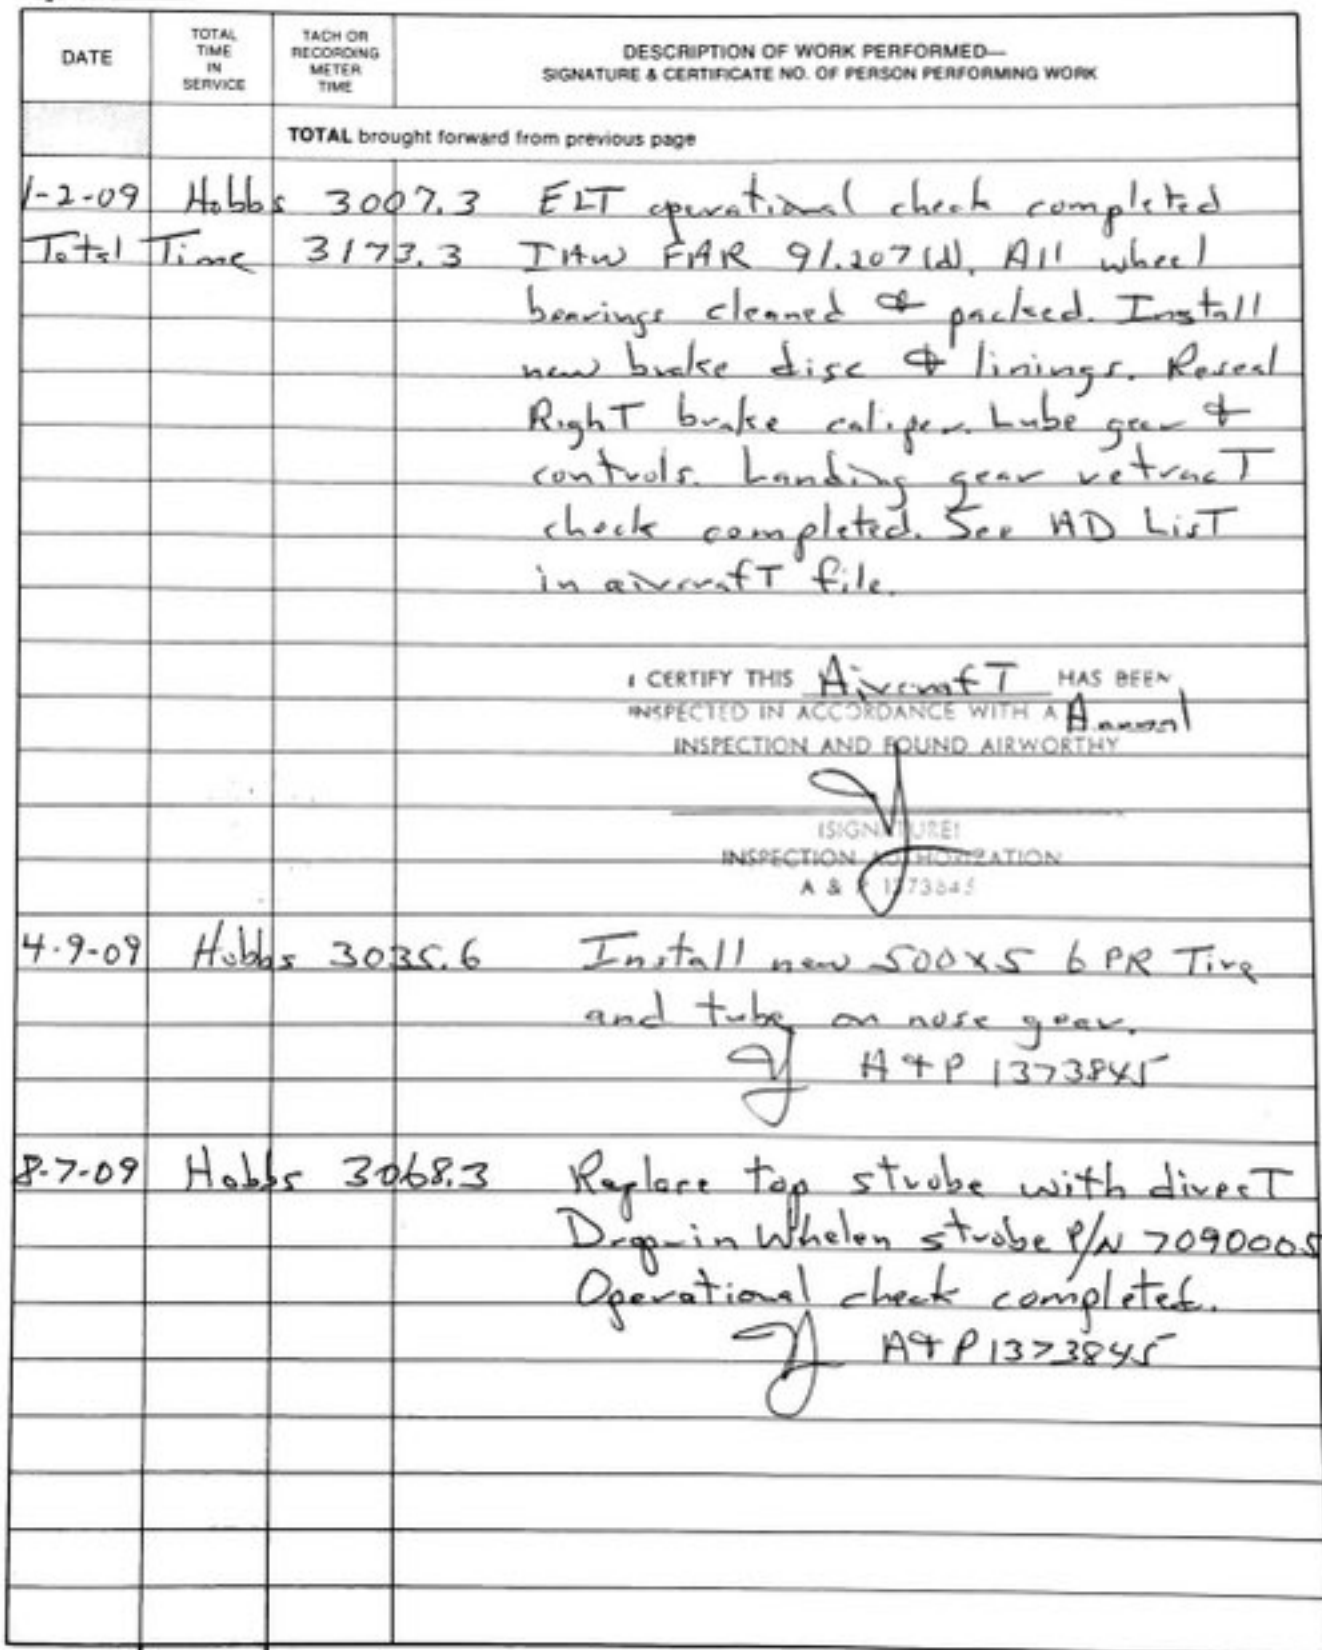 DATE
TOTAL TIME IN SERVICE
TACH OR RECORDING METER TIME
DESCRIPTION OF WORK PERFORMED—
SIGNATURE & CERTIFICATE NO. OF PERSON PERFORMING WORK
TOTAL brought forward from previous page
1-2-09 Hobbs 3007.3 ELT operational check completed
Total Time 3173.3 IAW FAR 91.207(d). All wheel
bearings cleaned & packed. Install
new brake disc & linings. Reseal
Right brake caliper. Lube gear &
controls. Landing gear retract
check completed. See AD List
in aircraft file.
I CERTIFY THIS Aircraft HAS BEEN
INSPECTED IN ACCORDANCE WITH A Annual
INSPECTION AND FOUND AIRWORTHY
(SIGNATURE)
INSPECTION AUTHORIZATION
A & P 1373845
4-9-09 Hobbs 3035.6 Install new 500x5 6 PR Tire
and tube on nose gear.
A&P 1373845
8-7-09 Hobbs 3068.3 Replace top strobe with direct
Drop-in Whelen strobe P/N 7090005
Operational check completed.
A&P 1373845